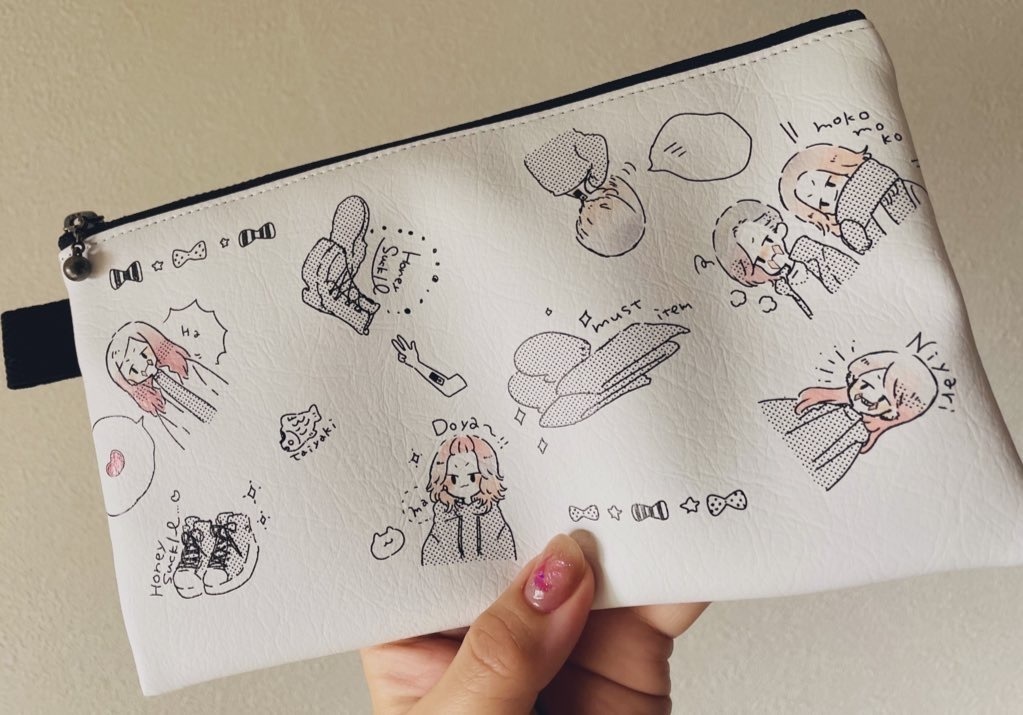 moko
mo
ko
Honey
Suckle
must item
Ha
Niyari
taiyaki
Doya~!!
ha
Honey
Suckle...♡